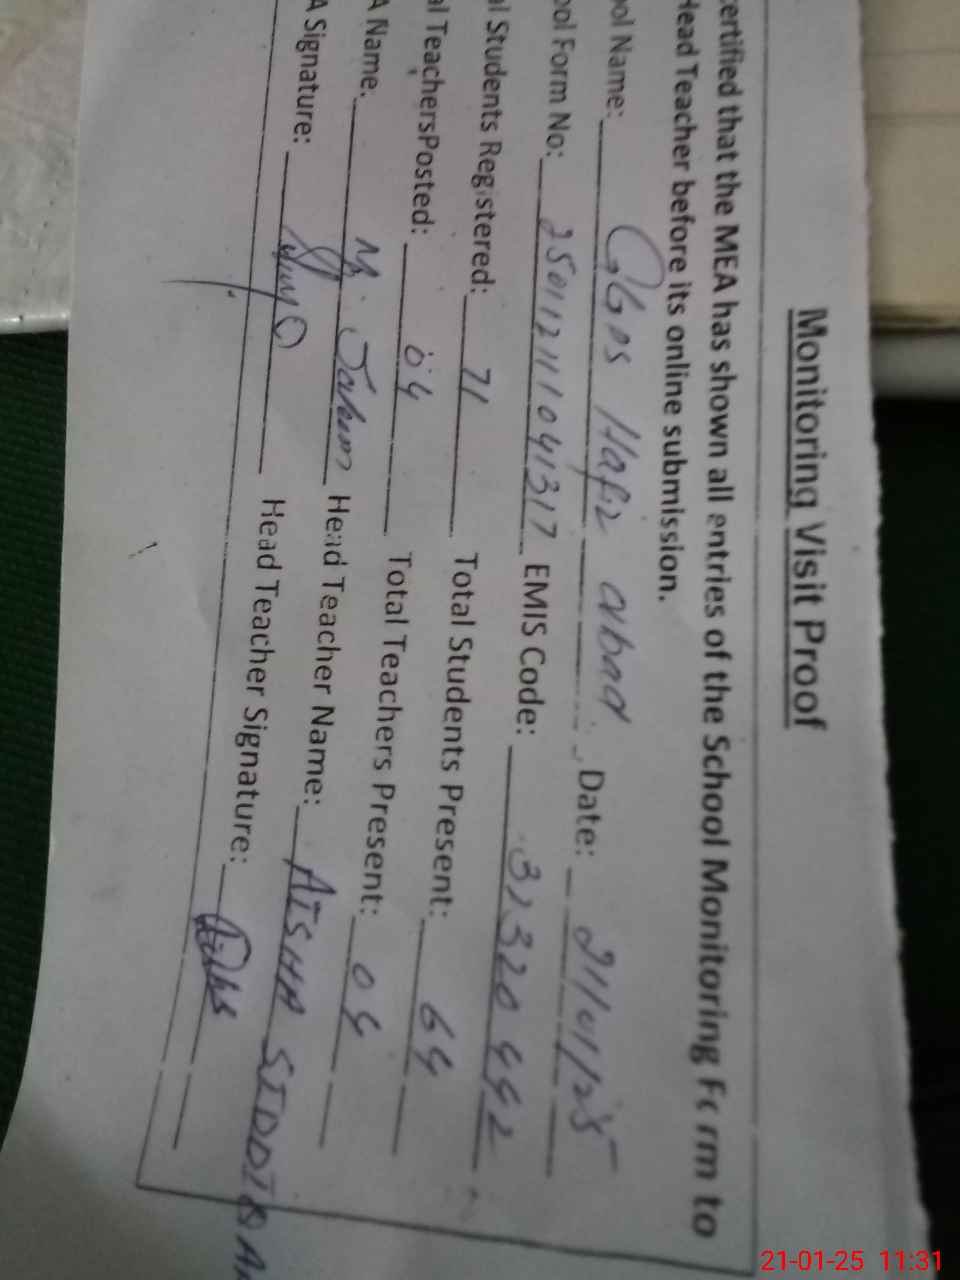 Monitoring Visit Proof
ertified that the MEA has shown all entries of the School Monitoring Form to
Head Teacher before its online submission.
ool Name: GGPS Hafiz abad Date: 21/01/25
ool Form No: 250112111041317 EMIS Code: 31320442
al Students Registered: 71 Total Students Present: 64
al TeachersPosted: 04 Total Teachers Present: 04
A Name: M. Head Teacher Name: AISHA SIDDIQA
A Signature: Head Teacher Signature:
21-01-25 11:31